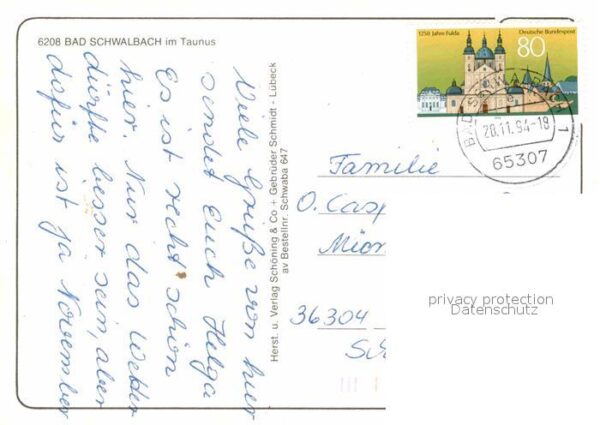 6208 BAD SCHWALBACH im Taunus
Viele Grüße von hier
sendet Euch Helga
Es ist recht schön
hier. Nur das Wetter
dürfte besser sein, aber
dafür ist ja November
Herst. u. Verlag Schöning & Co + Gebrüder Schmidt - Lübeck
av Bestellnr. Schwaba 647
1250 Jahre Fulda
Deutsche Bundespost
80
BAD
28.11.94-18
1
65307
Familie
O. Casp
36304
privacy protection
Datenschutz